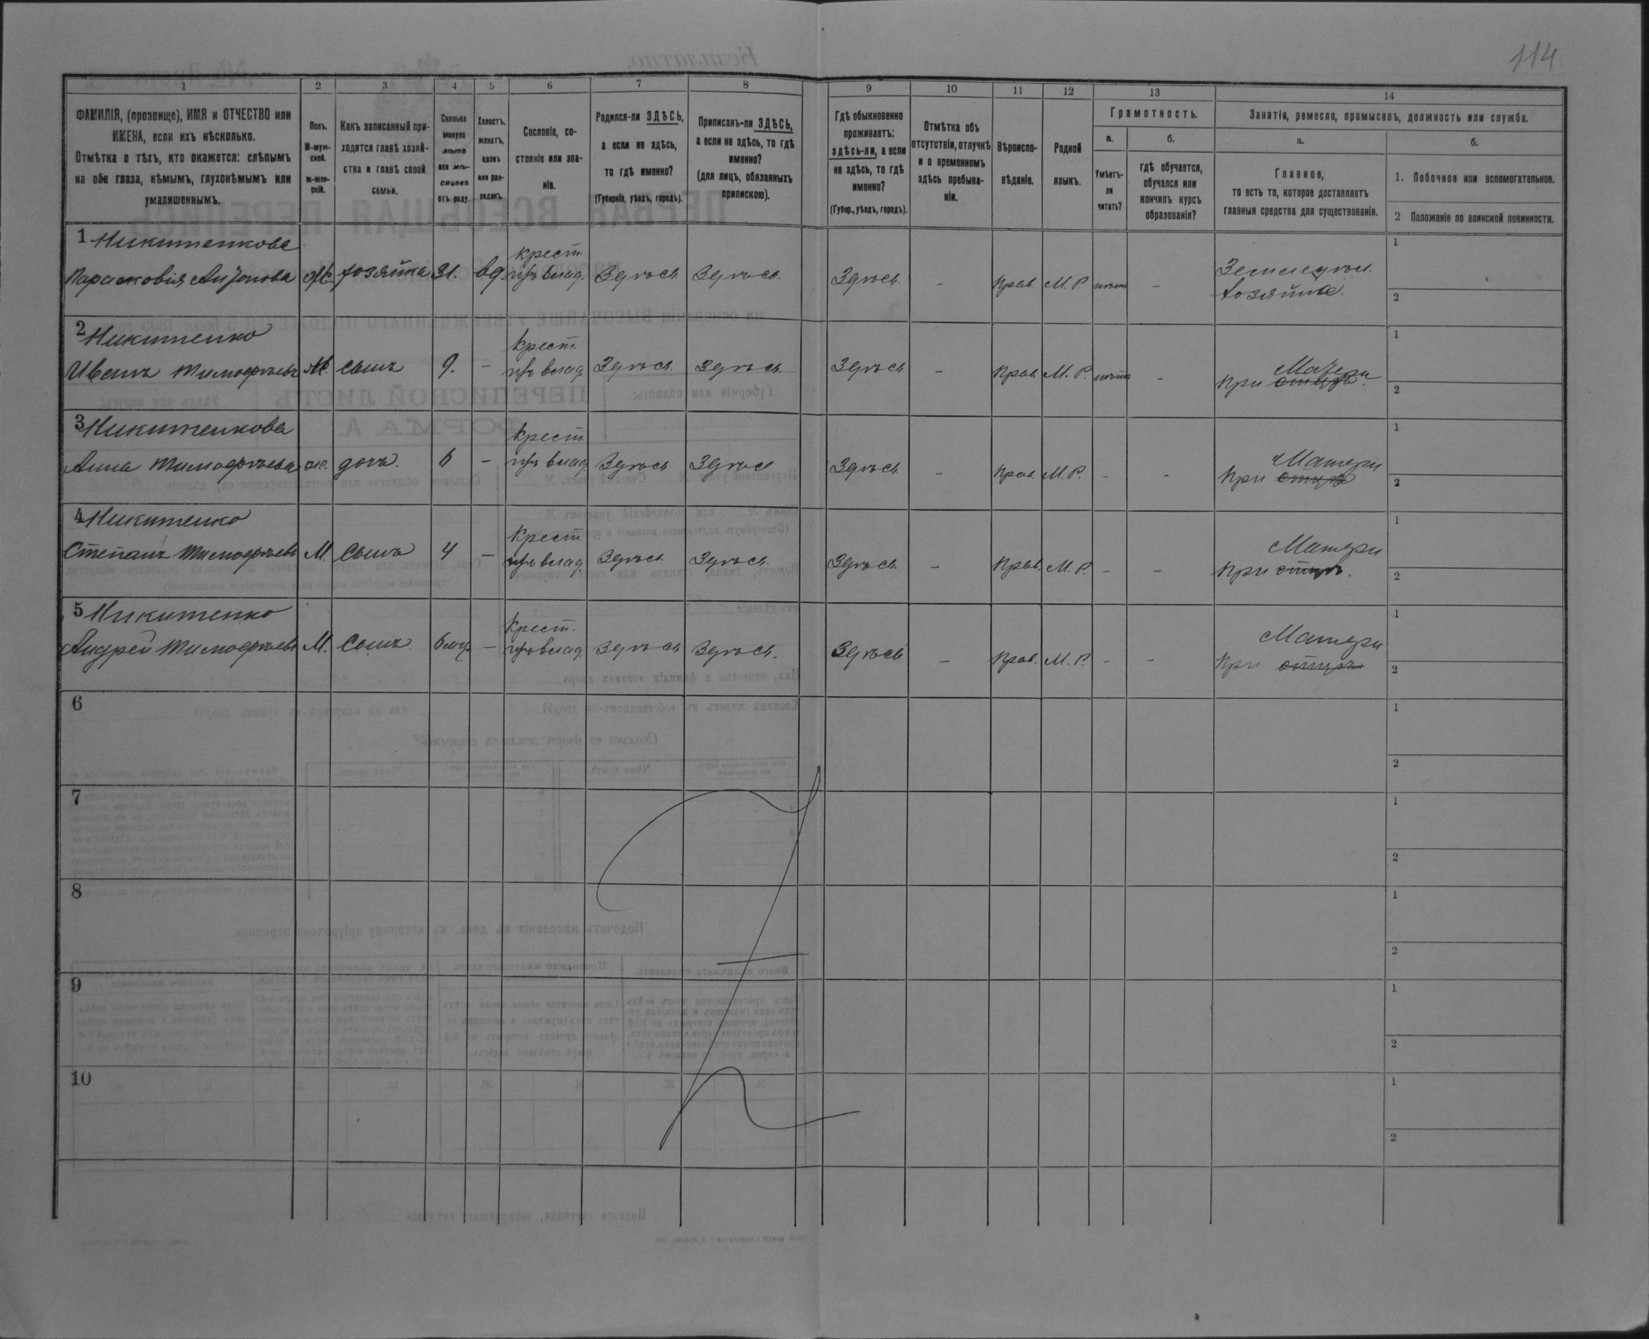 114
1 2 3 4 5 6 7 8 9 10 11 12 13 14
ФАМИЛІЯ, (прозвище), ИМЯ и ОТЧЕСТВО или
ИМЕНА, если ихъ нѣсколько.
Отмѣтка о тѣхъ, кто окажется: слѣпымъ
на оба глаза, нѣмымъ, глухонѣмымъ или
умалишеннымъ.
Полъ.
М-муж-
ской.
Ж-жен-
скій.
Какъ записанный при-
ходится главѣ хозяй-
ства и главѣ своей
семьи.
Сколько
минуло
лѣтъ
или мѣ-
сяцевъ
отъ роду.
Холостъ,
женатъ,
вдовъ
или раз-
веденъ.
Сословіе, со-
стояніе или зва-
ніе.
Родился-ли ЗДѢСЬ,
а если не здѣсь,
то гдѣ именно?
(Губернія, уѣздъ, городъ).
Приписанъ-ли ЗДѢСЬ,
а если не здѣсь, то гдѣ
именно?
(для лицъ, обязанныхъ
припискою).
Гдѣ обыкновенно
проживаетъ:
здѣсь-ли, а если
не здѣсь, то гдѣ
именно?
(Губер., уѣздъ, городъ).
Отмѣтка объ
отсутствіи, отлучкѣ
и о временномъ
здѣсь пребыва-
ніи.
Вѣроиспо-
вѣданіе.
Родной
языкъ.
Грамотность.
а.
Умѣетъ-
ли
читать?
б.
гдѣ обучается,
обучался или
кончилъ курсъ
образованія?
Занятіе, ремесло, промыселъ, должность или служба.
а.
Главное,
то есть то, которое доставляетъ
главныя средства для существованія.
б.
1. Побочное или вспомогательное.
2 Положеніе по воинской повинности.
1 Никитенкова Крест. Земледѣл. 1
Парасковія Антонова Ж. хозяйка 31. вд. Здѣсь Здѣсь Здѣсь - Прав. М. Р. - хозяйка. 2
2 Никитенко Крест. Матери 1
Иванъ Тимофѣевъ М. сынъ 9. - Здѣсь Здѣсь Здѣсь - Прав. М. Р. - При отцѣ. 2
3 Никитенкова Крест. Матери 1
Анна Тимофѣева дочь. 6 - Здѣсь Здѣсь Здѣсь - Прав. М. Р. - - При отцѣ 2
4 Никитенко Крест. Матери 1
Степанъ Тимофѣевъ М. Сынъ 4 - Здѣсь Здѣсь Здѣсь - Прав. М. Р. - - При отцѣ. 2
5 Никитенко Крест. Матери 1
Андрей Тимофѣевъ М. Сынъ - Здѣсь Здѣсь. Здѣсь - Прав. М. Р. - - При отцѣ 2
6 1
2
7 1
2
8 1
2
9 1
2
10 1
2